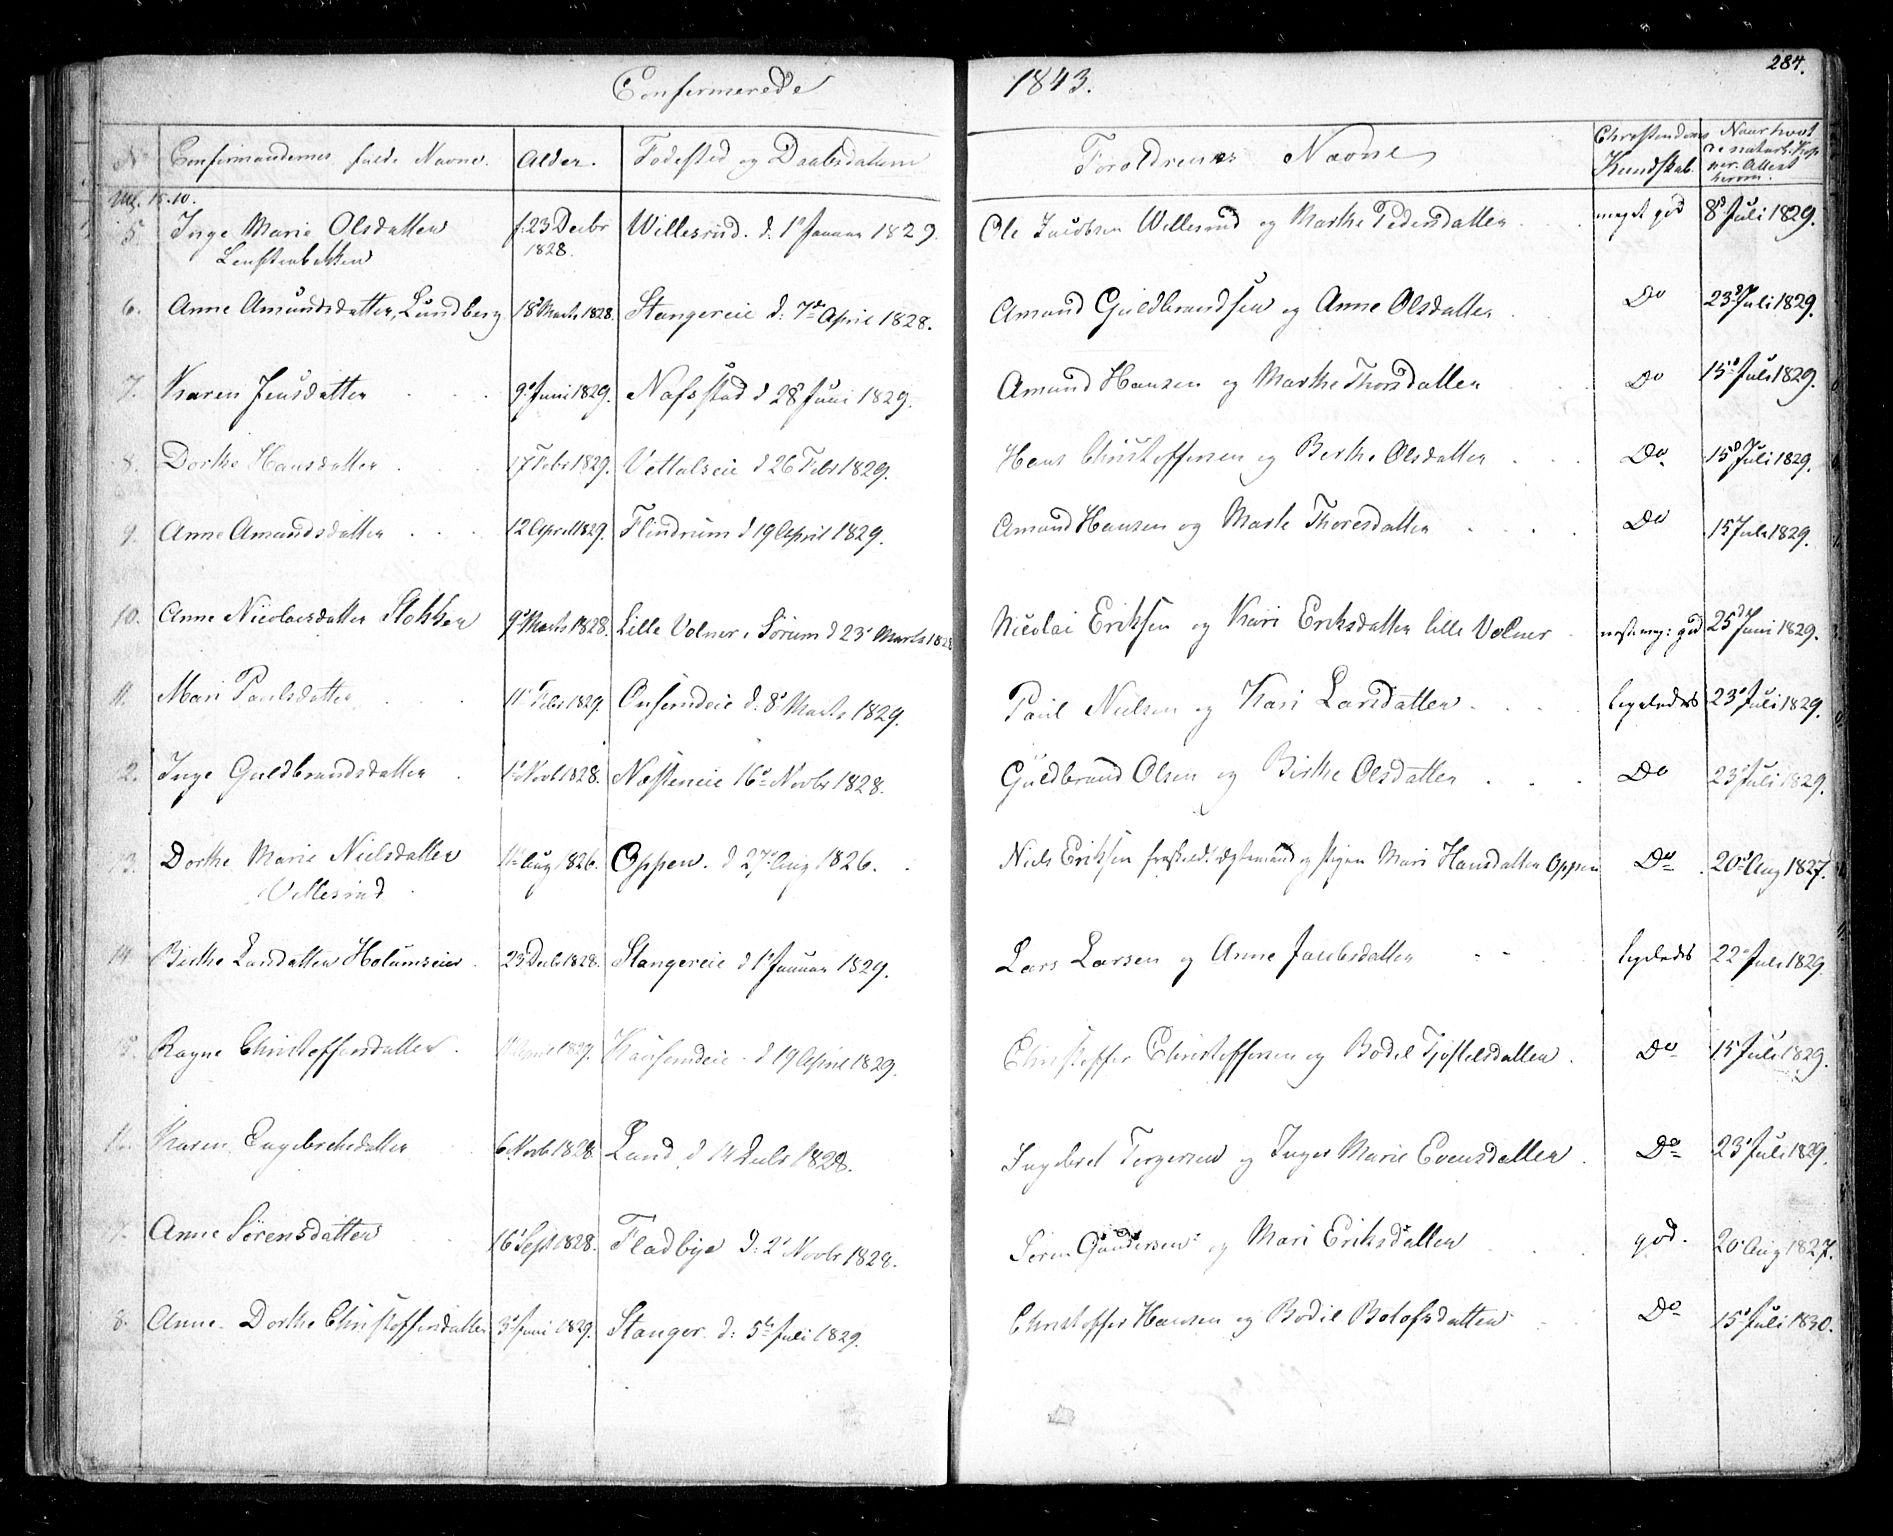 284.
Confirmerede 1843.
No Confirmandernes fulde Navne. Alder. Fødested og Daabsdatum Forældrenes Navne Christendoms Kundskab. Naar havt de naturl. Kop per. Attest herom.
5. Inge Marie Olsdatter f. 23 Decbr Willesrud. d. 1 Januar 1829. Ole Jacobsen Willesrud og Marthe Pedersdatter meget god 8d Juli 1829.
1828.
6. Anne Amundsdatter, Lundberg 18 Marts 1828. Stangereie d: 7de April 1828. Amund Guldbrandsen og Anne Olsdatter Do 23d Juli 1829.
7. Karen Jensdatter 9 Juni 1829. Nafstad d 28 Juni 1829. Amund Hansen og Marthe Thorsdatter Do 15d Juli 1829.
8. Dorthe Hansdatter 17 Febr 1829. Vettalseie d 26 Febr 1829. Hans Christoffersen og Berthe Olsdatter Do 15d Juli 1829.
9. Anne Amundsdatter 12 April 1829. Flindrum d 19 April 1829. Amund Hansen og Marte Thoresdatter Do 15 Juli 1829.
10. Anne Nicolaisdatter Stokker 9 Marts 1828. Lille Volner i Sørum d 23 Marts 1828 Nicolai Eriksen og Kari Eriksdatter lille Volner næst. meg: god 25d Juni 1829.
11. Mari Paulsdatter 11 Febr 1829. d. 8 Marts 1829. Paul Nielsen og Kari Larsdatter ligeledes 23 Juli 1829.
2. Inge Guldbrandsdatter 1 Novbr 1828. Næsteneie 16 Novbr 1828. Guldbrand Olsen og Birthe Olsdatter Do 23 Juli 1829.
13. Dorthe Marie Nielsdatter 11 Aug 1826. Oppen. d 27 Aug 1826. Niels Eriksen fraskildt ægtemand og pigen Mari Hansdatter Oppen Do 20d Aug 1827.
Villesrud
14 Birthe Larsdatter Holumseie 23 Decbr 1828. Stangereie d 1 Januar 1829. Lars Larsen og Anne Jacobsdatter ligeledes 22 Juli 1829.
5. Ragne Christoffersdatter April 1829. d 19 April 1829. Christoffer Christoffersen og Bodel Tjøstelsdatter Do 15 Juli 1829.
Karen Engebrethsdatter 6 Novbr 1828 Land d 14 Decbr 1828. Ingebret Torgersen og Inger Marie Evensdatter Do 23 Juli 1829.
7. Anne Sørensdatter 16 Sept 1828. Fladbye d: 2 Novbr 1828. Søren Gundersen og Mari Eriksdatter god. 20 Aug 1827.
8. Anne Dorthe Christoffersdatter 3 Juni 1829. Stanger d: 5te Juli 1829. Christoffer Hansen og Bodil Botofsdatter Do 15 Juli 1830.